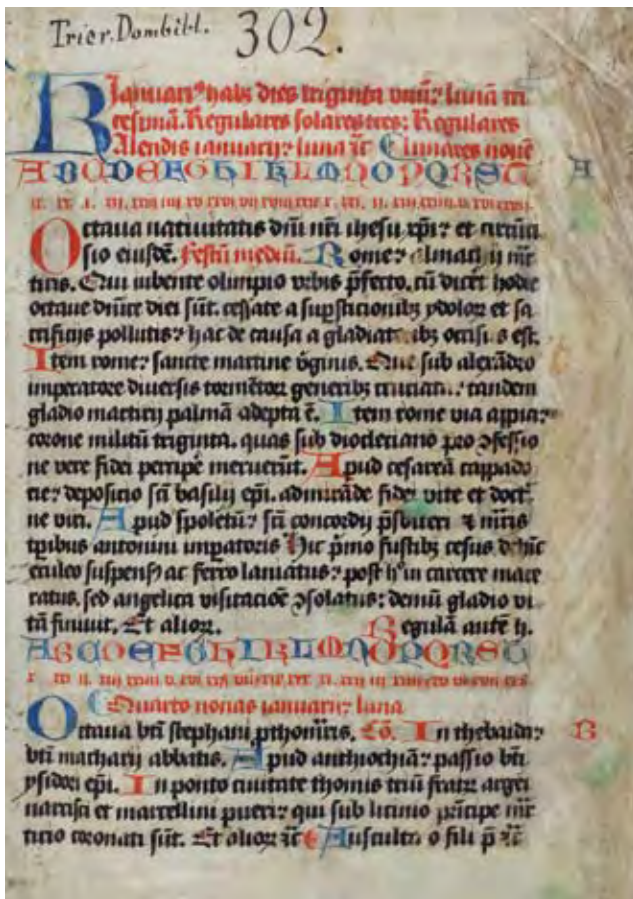 Trier. Dombibl. 302.
Januariꝰ habꝫ dies triginta vnū? lunā tri
cesimā. Regulares solares tres: Regulares
Kalendis ianuarij? luna ⁊c̄ lunares nouē
A B C D E F G H I K L M N O P Q R S T A
Octaua natiuitatis dn̄i nr̄i ihesu xp̄i? et circūci
sio eiusdē. Festū mediū. Rome? almachij mr̄
tiris. Qui iubente olimpio vrbis p̄fecto. cū dicēt hodie
octaue dn̄ice diei sūt. cessate a sup̄sticionibꝫ ydoloꝝ et sa
crificijs pollutis? hac de causa a gladiatoribꝫ occisus est.
Item rome? sancte martine v̄ginis. Que sub alexādro
imperatore diuersis tormētoꝝ generibꝫ cruciata? tandem
gladio martirij palmā adepta ē. Item rome via appia?
corone militū triginta. quas sub diocleciano pro ꝯfessio
ne vere fidei percipē meruerūt. Apud cesareā cappado
cie? deposicio sc̄i basilij ep̄i. admirāde fidei vite et doctͥ
ne viri. Apud spoletū? sc̄i concordij p̄sbiteri ⁊ mr̄is
tp̄ibus antonini imp̄atoris Hic p̄mo fustibꝫ cesus dehīc
eculeo suspensꝰ ac ferro laniatus? post h͛ in carcere mace
ratus. sed angelica visitacioē ꝯsolatus: demū gladio vi
tā finiuit. Et alioꝝ. Regulā autē h.
A B C D E F G H I K L M N O P Q R S T
Quarto nonas ianuarij? luna
Octaua bt̄i stephani p̄thomr̄is. Cō. In thebaida? B
bt̄i macharij abbatis. Apud anthiochiā? passio bt̄i
ysidori ep̄i. In ponto ciuitate thomis triū fratꝝ argei
narcisci et marcellini pueri? qui sub licinio prīncipe mr̄
tirio coronati sūt. Et alioꝝ ⁊c̄ Ausculta o fili p̄ ⁊c̄